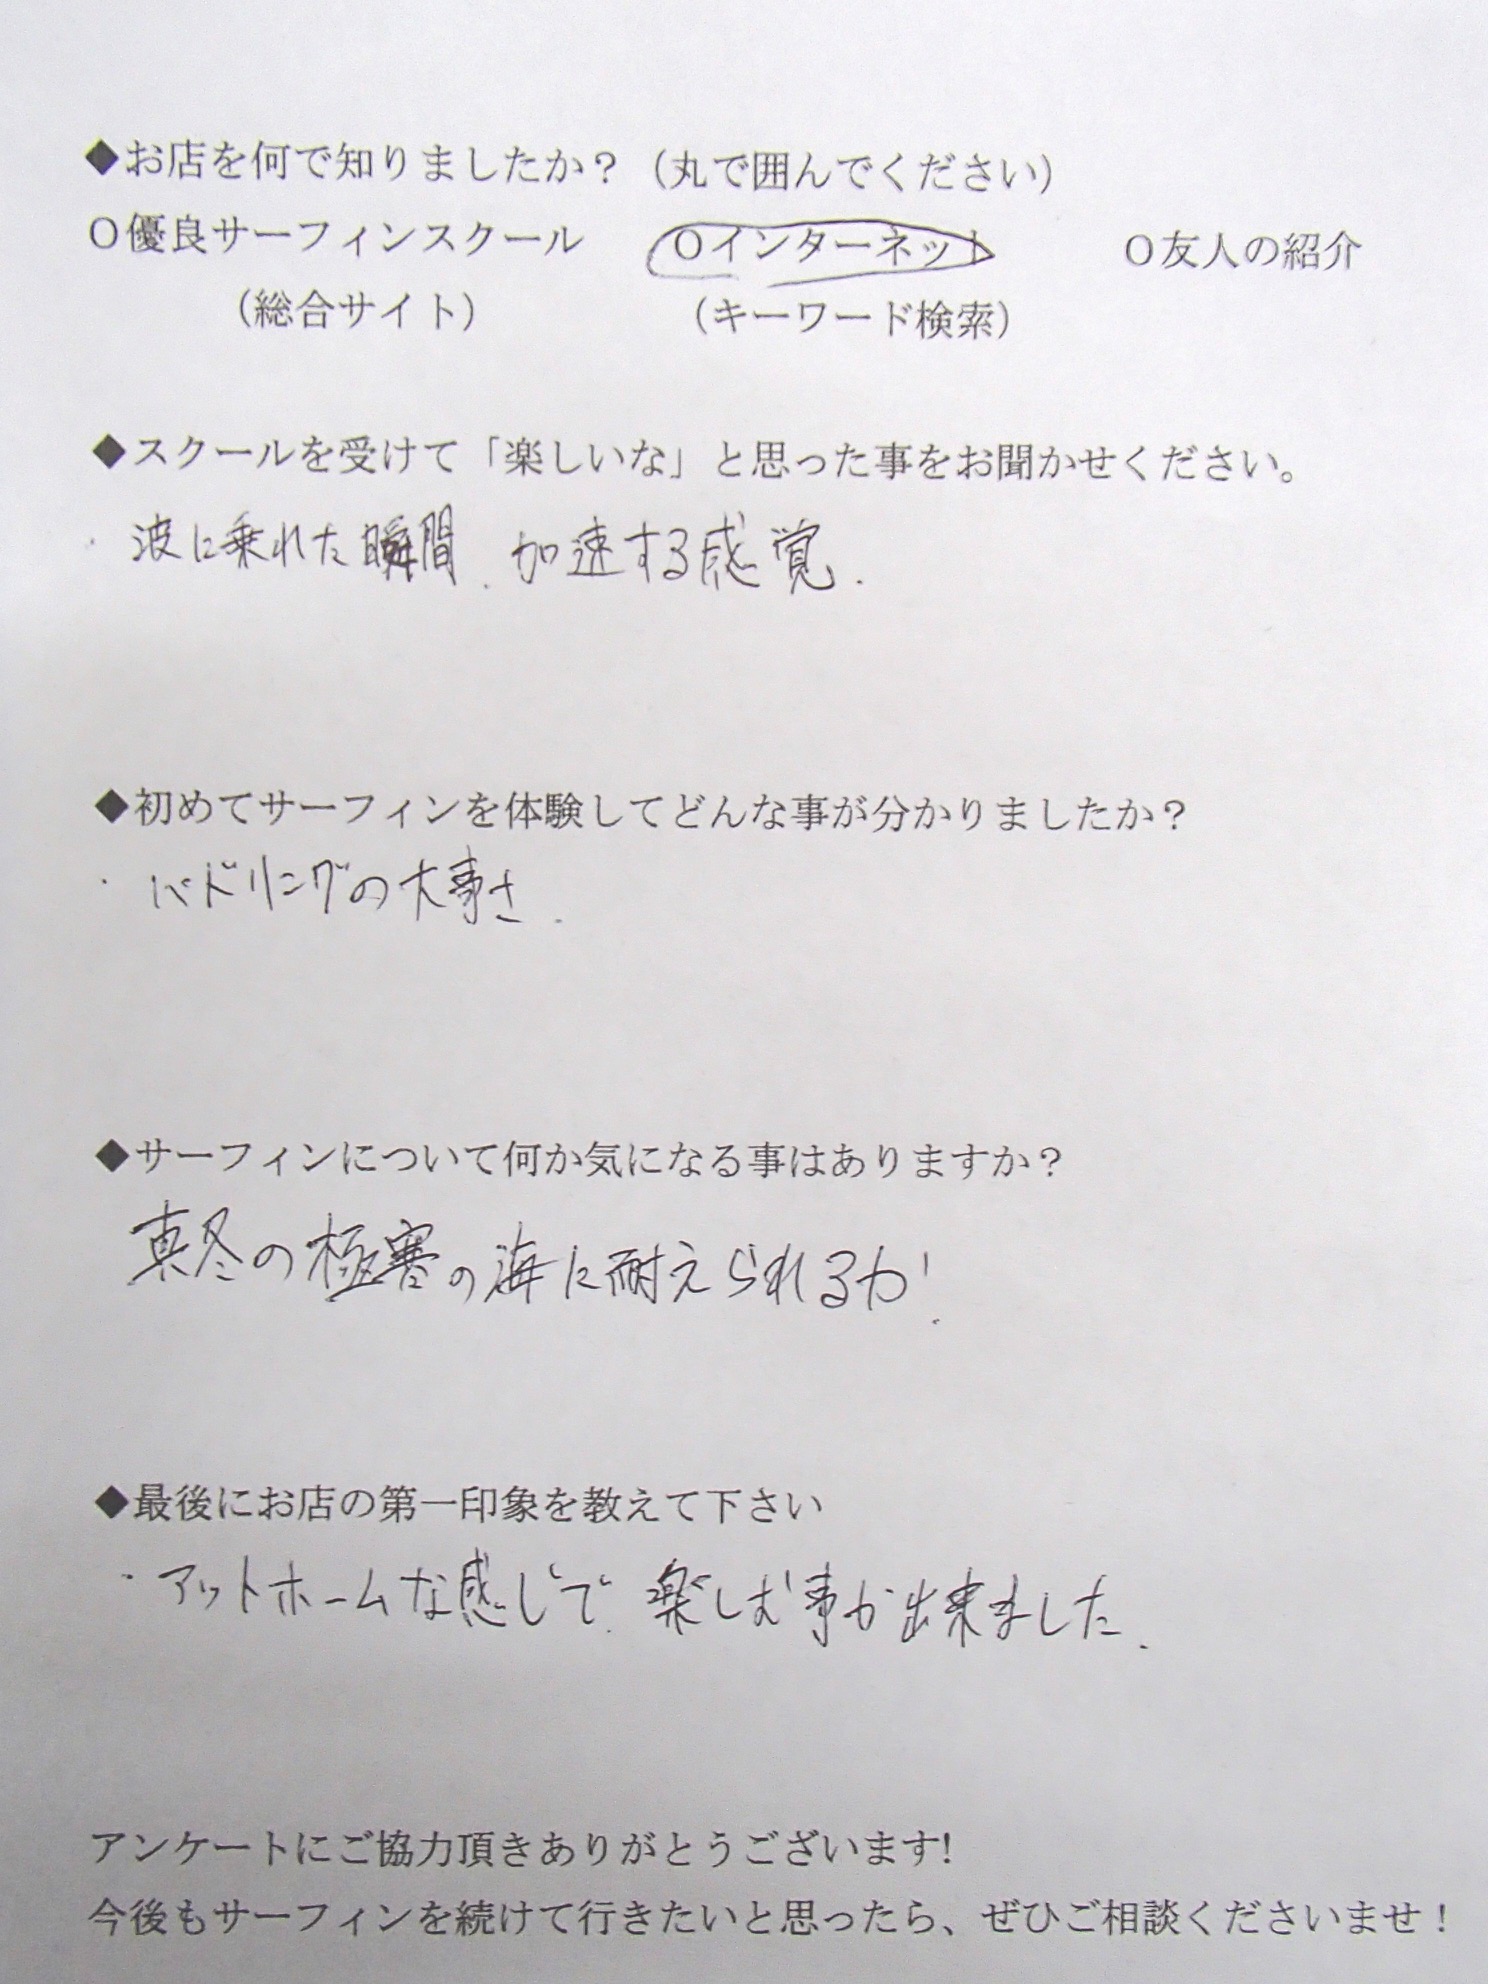 ◆お店を何で知りましたか？（丸で囲んでください）
○優良サーフィンスクール　○インターネット　○友人の紹介
（総合サイト）　（キーワード検索）
◆スクールを受けて「楽しいな」と思った事をお聞かせください。
・波に乗れた瞬間、加速する感覚.
◆初めてサーフィンを体験してどんな事が分かりましたか？
・パドリングの大事さ.
◆サーフィンについて何か気になる事はありますか？
真冬の極寒の海に耐えられるか.
◆最後にお店の第一印象を教えて下さい
・アットホームな感じで、楽しむ事が出来ました.
アンケートにご協力頂きありがとうございます!
今後もサーフィンを続けて行きたいと思ったら、ぜひご相談くださいませ！